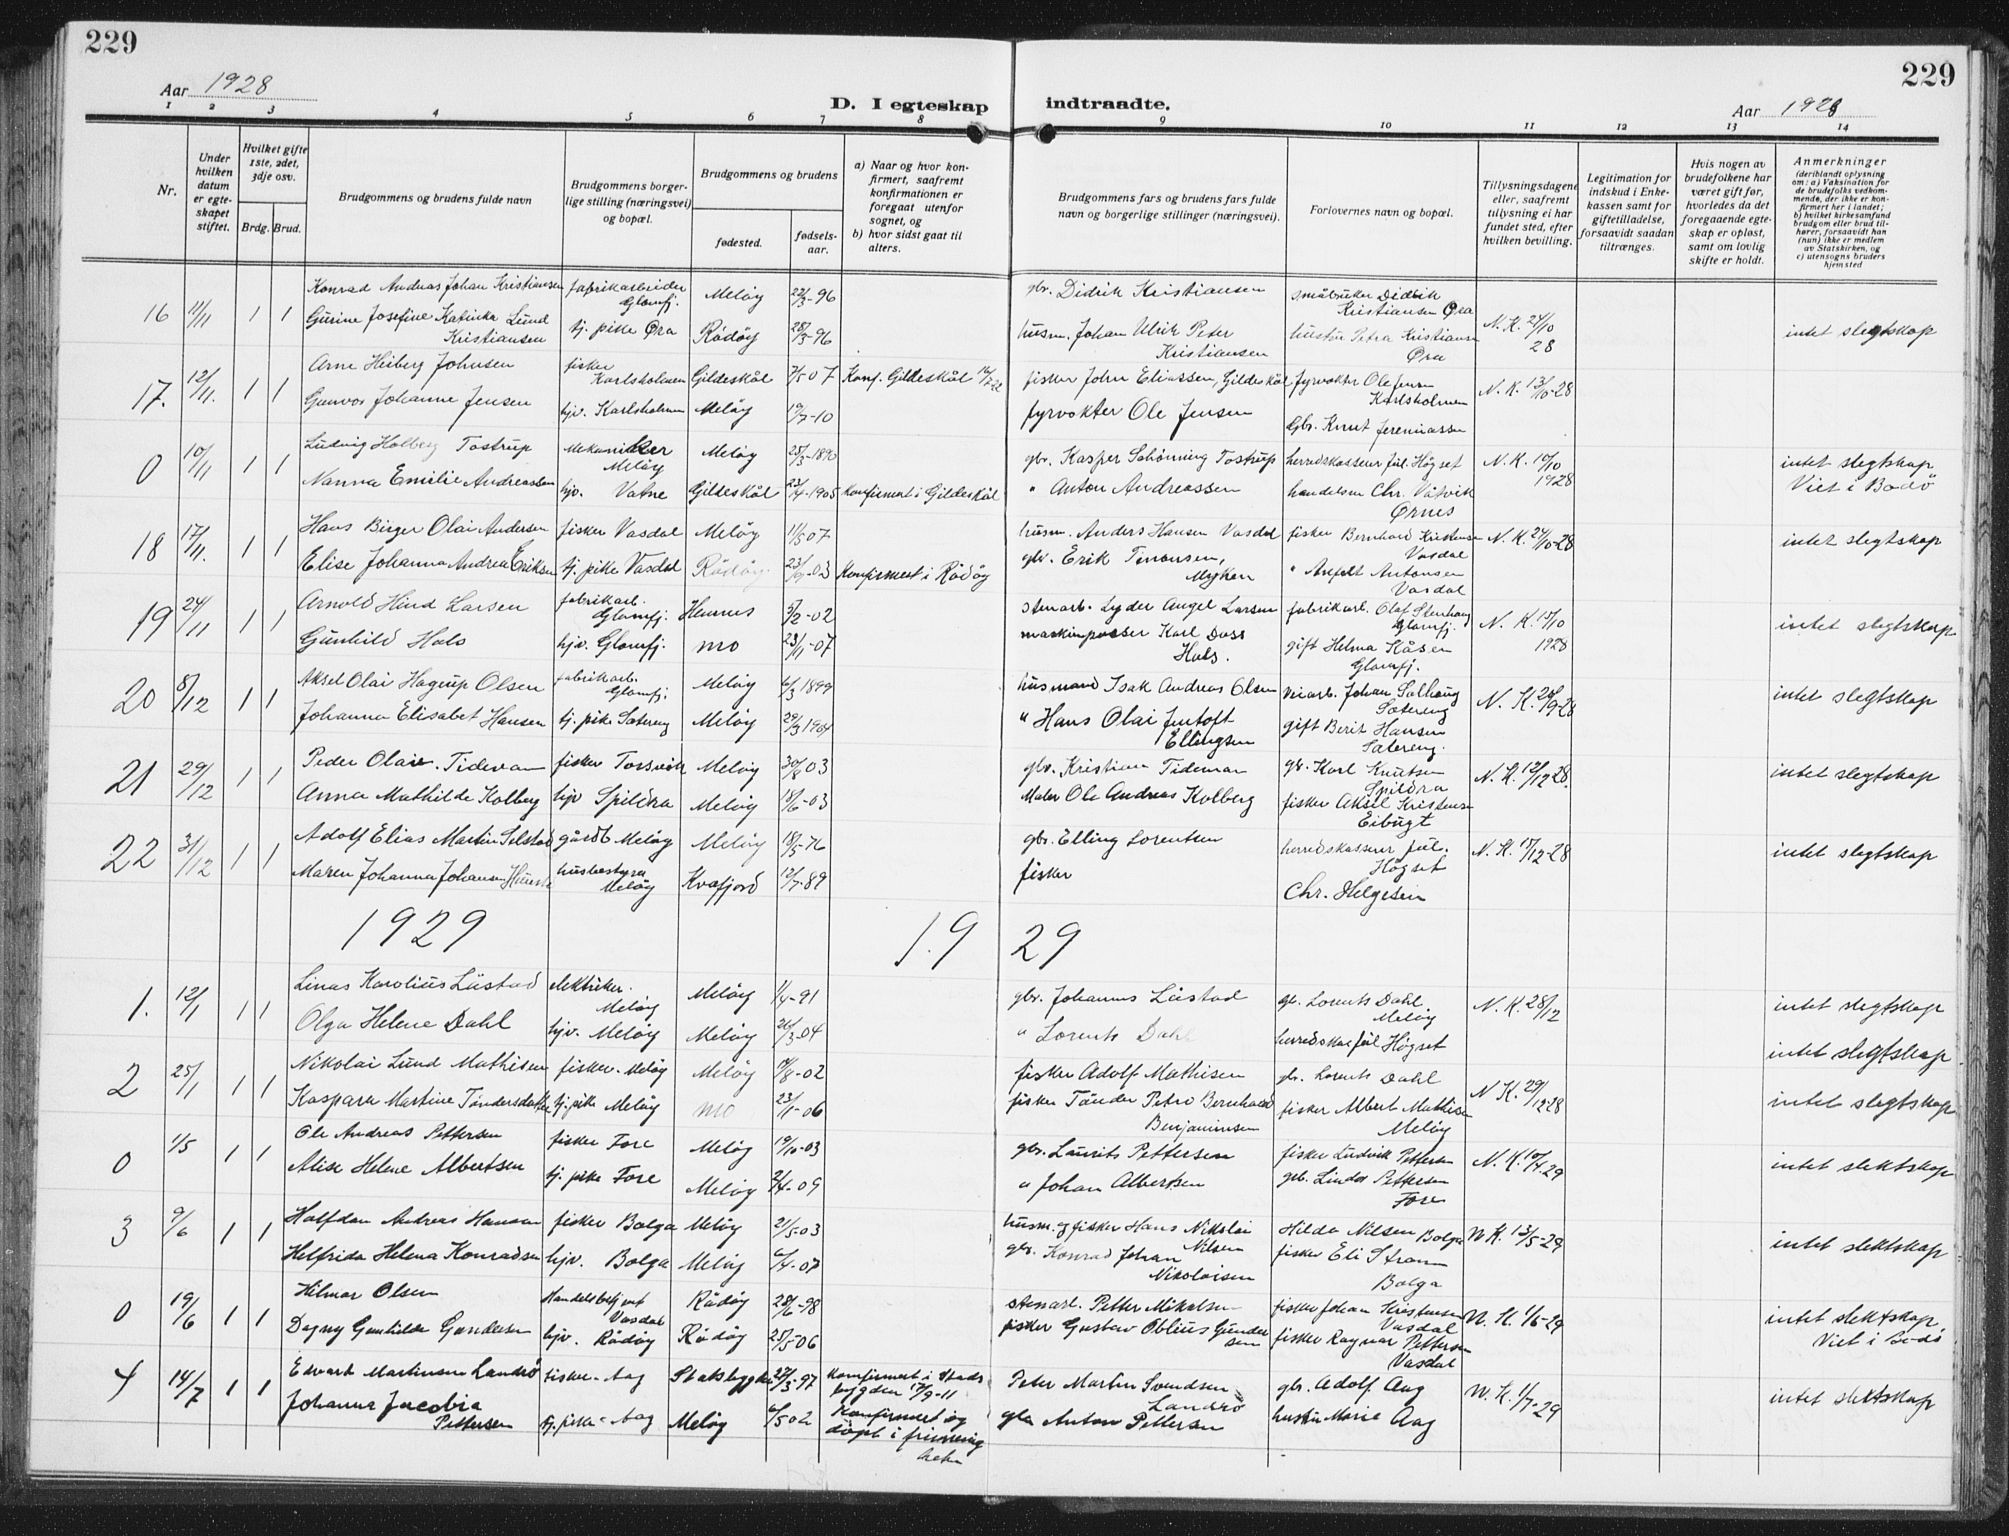 229
229
Aar 1928
D. I egteskap indtraadte.
Aar 1928
1 2 3 4 5 6 7 8 9 10 11 12 13 14
Nr.
Under hvilken datum er egteskapet stiftet.
Hvilket gifte 1ste, 2det, 3dje osv.
Brdg. Brud.
Brudgommens og brudens fulde navn
Brudgommens borgerlige stilling (næringsvei) og bopæl.
Brudgommens og brudens
fødested.
fødselsaar.
a) Naar og hvor konfirmert, saafremt konfirmationen er foregaat utenfor sognet, og
b) hvor sidst gaat til alters.
Brudgommens fars og brudens fars fulde navn og borgerlige stillinger (næringsvei).
Forlovernes navn og bopæl.
Tillysningsdagene eller, saafremt tillysning ei har fundet sted, efter hvilken bevilling.
Legitimation for indskud i Enkekassen samt for giftetilladelse, forsaavidt saadan tiltrænges.
Hvis nogen av brudefolkene har været gift før, hvorledes da det foregaaende egteskap er opløst, samt om lovlig skifte er holdt.
Anmerkninger
(deriblandt oplysning om: a) Vaksination for de brudefolks vedkommende, der ikke er konfirmert her i landet;
b) hvilket kirkesamfund brudgom eller brud tilhører, forsaavidt han (hun) ikke er medlem av Statskirken, og
c) utensogns bruders hjemsted
16 11/11 1 1 Konrad Andreas Johan Kristiansen fabrikarbeider Glomfj. Meløy 22/3-96 gbr. Didrik Kristiansen småbruker Didrik Kristiansen Øra N. K. 24/10 28 intet slegtskap
Gurine Josefine Katinka Lund Kristiansen tj. pike Øra Rödöy 28/3-96 husm. Johan Ulrik Peter Kristiansen hustru Petra Kristiansen Øra
17. 12/11. 1 1 Arne Heiberg Johnsen fisker Karlsholmen Gildeskål 7/5 07 Konf. Gildeskål fisker John Eliassen, Gildeskål fyrvokter Ole Jensen Karlsholmen N. K. 13/10-28
Gunvor Johanne Jensen hjv. Karlsholmen Meløy 19/7-10 fyrvokter Ole Jensen Gbr. Knut Jeremiassen
0 10/11 1 1 Ludvig Holberg Tostrup Mekaniker Meløy Meløy 25/3-1890 gbr. Kasper Schönning Tostrup herredskasserer Jul. Högset N. K. 10/10 1928 intet slegtskap Viet i Bodö
Nanna Emilie Andreassen hjv. Vatne Gildeskål 23/4-1905 konfirmert i Gildeskål " Anton Andreassen handelsm Chr. Våtvik Ørnes
18 17/11. 1 1 Hans Birger Olai Andersen fisker Vasdal Meløy 11/5 07 husm. Anders Hansen Vasdal fisker Bernhard Kristensen Vasdal N. K. 24/10-28 intet slegtskap
Elise Johanna Andrea Eriksen tj. pike Vasdal Rödöy 23/9-03 konfirmert i Rödöy gbr. Erik Timonsen, Myken " Antonsen Vasdal
19 24/11 1 1 Arnold Hind Larsen fabrikarb. Glomfj. Hemnes 5/2-02 stenarb. Lyder Angel Larsen fabrikarb. Olaf Stenhaug Glomfj. N. K. 15/10 1928 intet slegtskap
Gunhild Hals hjv. Glomfj. mo 23/11-07 maskinpasser Karl Dass Hals. gift Helma Kåsen Glomfj.
20 8/12 1 1 Aksel Olai Hagrup Olsen fabrikarb. Glomfj. Meløy 6/3 1899 husmand Isak Andreas Olsen veiarb. Johan Solhaug Sætereng N. K. 26/9-28 intet slegtskap
Johanna Elisabet Hansen tj. pike Sætereng Meløy 29/3 1904 " Hans Olai Jentoft Ellingsen gift Berit Hansen Sætereng.
21 29/12 1 1 Peder Olai Tideman fisker Torsvik Meløy 30/8 03 gbr. Kristian Tideman gbr. Karl Knutsen Spildra N. K. 12/12 28. intet slegtskap
Anna Mathilde Kolberg hjv Spildra Meløy 18/6-03 Maler Ole Andreas Kolberg fisker Aksel Kristensen Eibugt
22 31/12 1 1 Adolf Elias Martin Selstad gårdb Meløy Meløy 18/5-76 gbr. Elling Lorentsen herredskasserer Jul. Högset N. K. 17/12-28 intet slegtskap
Maren Johanna Johansen husbestyra Meløy Kvæfjord 12/7-89 fisker Chr. Helgesen
1929 1929
1. 12/1 1 1 Linas Karolius Låstad elektriker. Meløy Meløy 1/4-91 gbr. Johannes Låstad gb. Lorents Dahl Meløy N. K. 28/12 intet slegtskap
Olga Helene Dahl hjv. Meløy Meløy 26/3-04 " Lorents Dahl herredskas Jul Högset
2 25/1 1 1 Nikolai Lund Mathisen fisker. Meløy Meløy 14/8-02 fisker Adolf Mathisen gb. Lorents Dahl N. K. 29/12-28 intet slegtskap
Kaspara Martine Tøndersdatter tj. pike Meløy mo 23/1-06 fisker Tønder Petro Bernhard Benjaminsen fisker Albert Mathisen Meløy intet slegtskap
0 1/5 1 1 Ole Andreas Pettersen fisker Fore Meløy 19/10-03 gbr. Laurits Pettersen fisker Ludvik Pettersen N. K. 10/4 29 intet slektskap
Alise Helene Albertsen tj. pike Fore Meløy 2/4-09 " Johan Albertsen gb. Lindor Pettersen Fore
3 9/6 1 1 Halfdan Andreas Hansen fisker Bolga Meløy 21/5-03 husm. og fisker Hans Nikolai Nilsen Hilda Nilsen Bolga N. K. 13/5-29 intet slektskap
Helfrida Helena Konradsen hjv. Bolga Meløy 6/4-07 gbr. Konrad Johan Nikolaisen fisker Eli Strøm Bolga
0 19/6 1 1 Hilmar Olsen Handelsbetjent Vasdal Rödöy 28/6-98 stenarb. Petter Mikalsen fisker Johan Kristensen Vasdal N. K. 1/6-29 intet slektskap Viet i Bodö
Dagny Gunhilde Gundersen hjv. Rödöy Rödöy 25/5 06 fisker Gustav Oblius Gundersen fisker Ragnar Pettersen Vasdal
4 14/7 1 1 Edvart Martinsen Landrö fisker - Aag Stadsbygden 27/3-97 konfirmert i Stadsbygden 17/9-11 Peter Martin Svendsen Landrö gbr. Adolf Aag N. K. 1/7-29 intet slektskap
Johanna Jacobia Pettersen tj. pike - Aag Meløy 6/5 02 konfirmert og döpt i frimenigheten gbr Anton Pettersen hustru Marie Aag